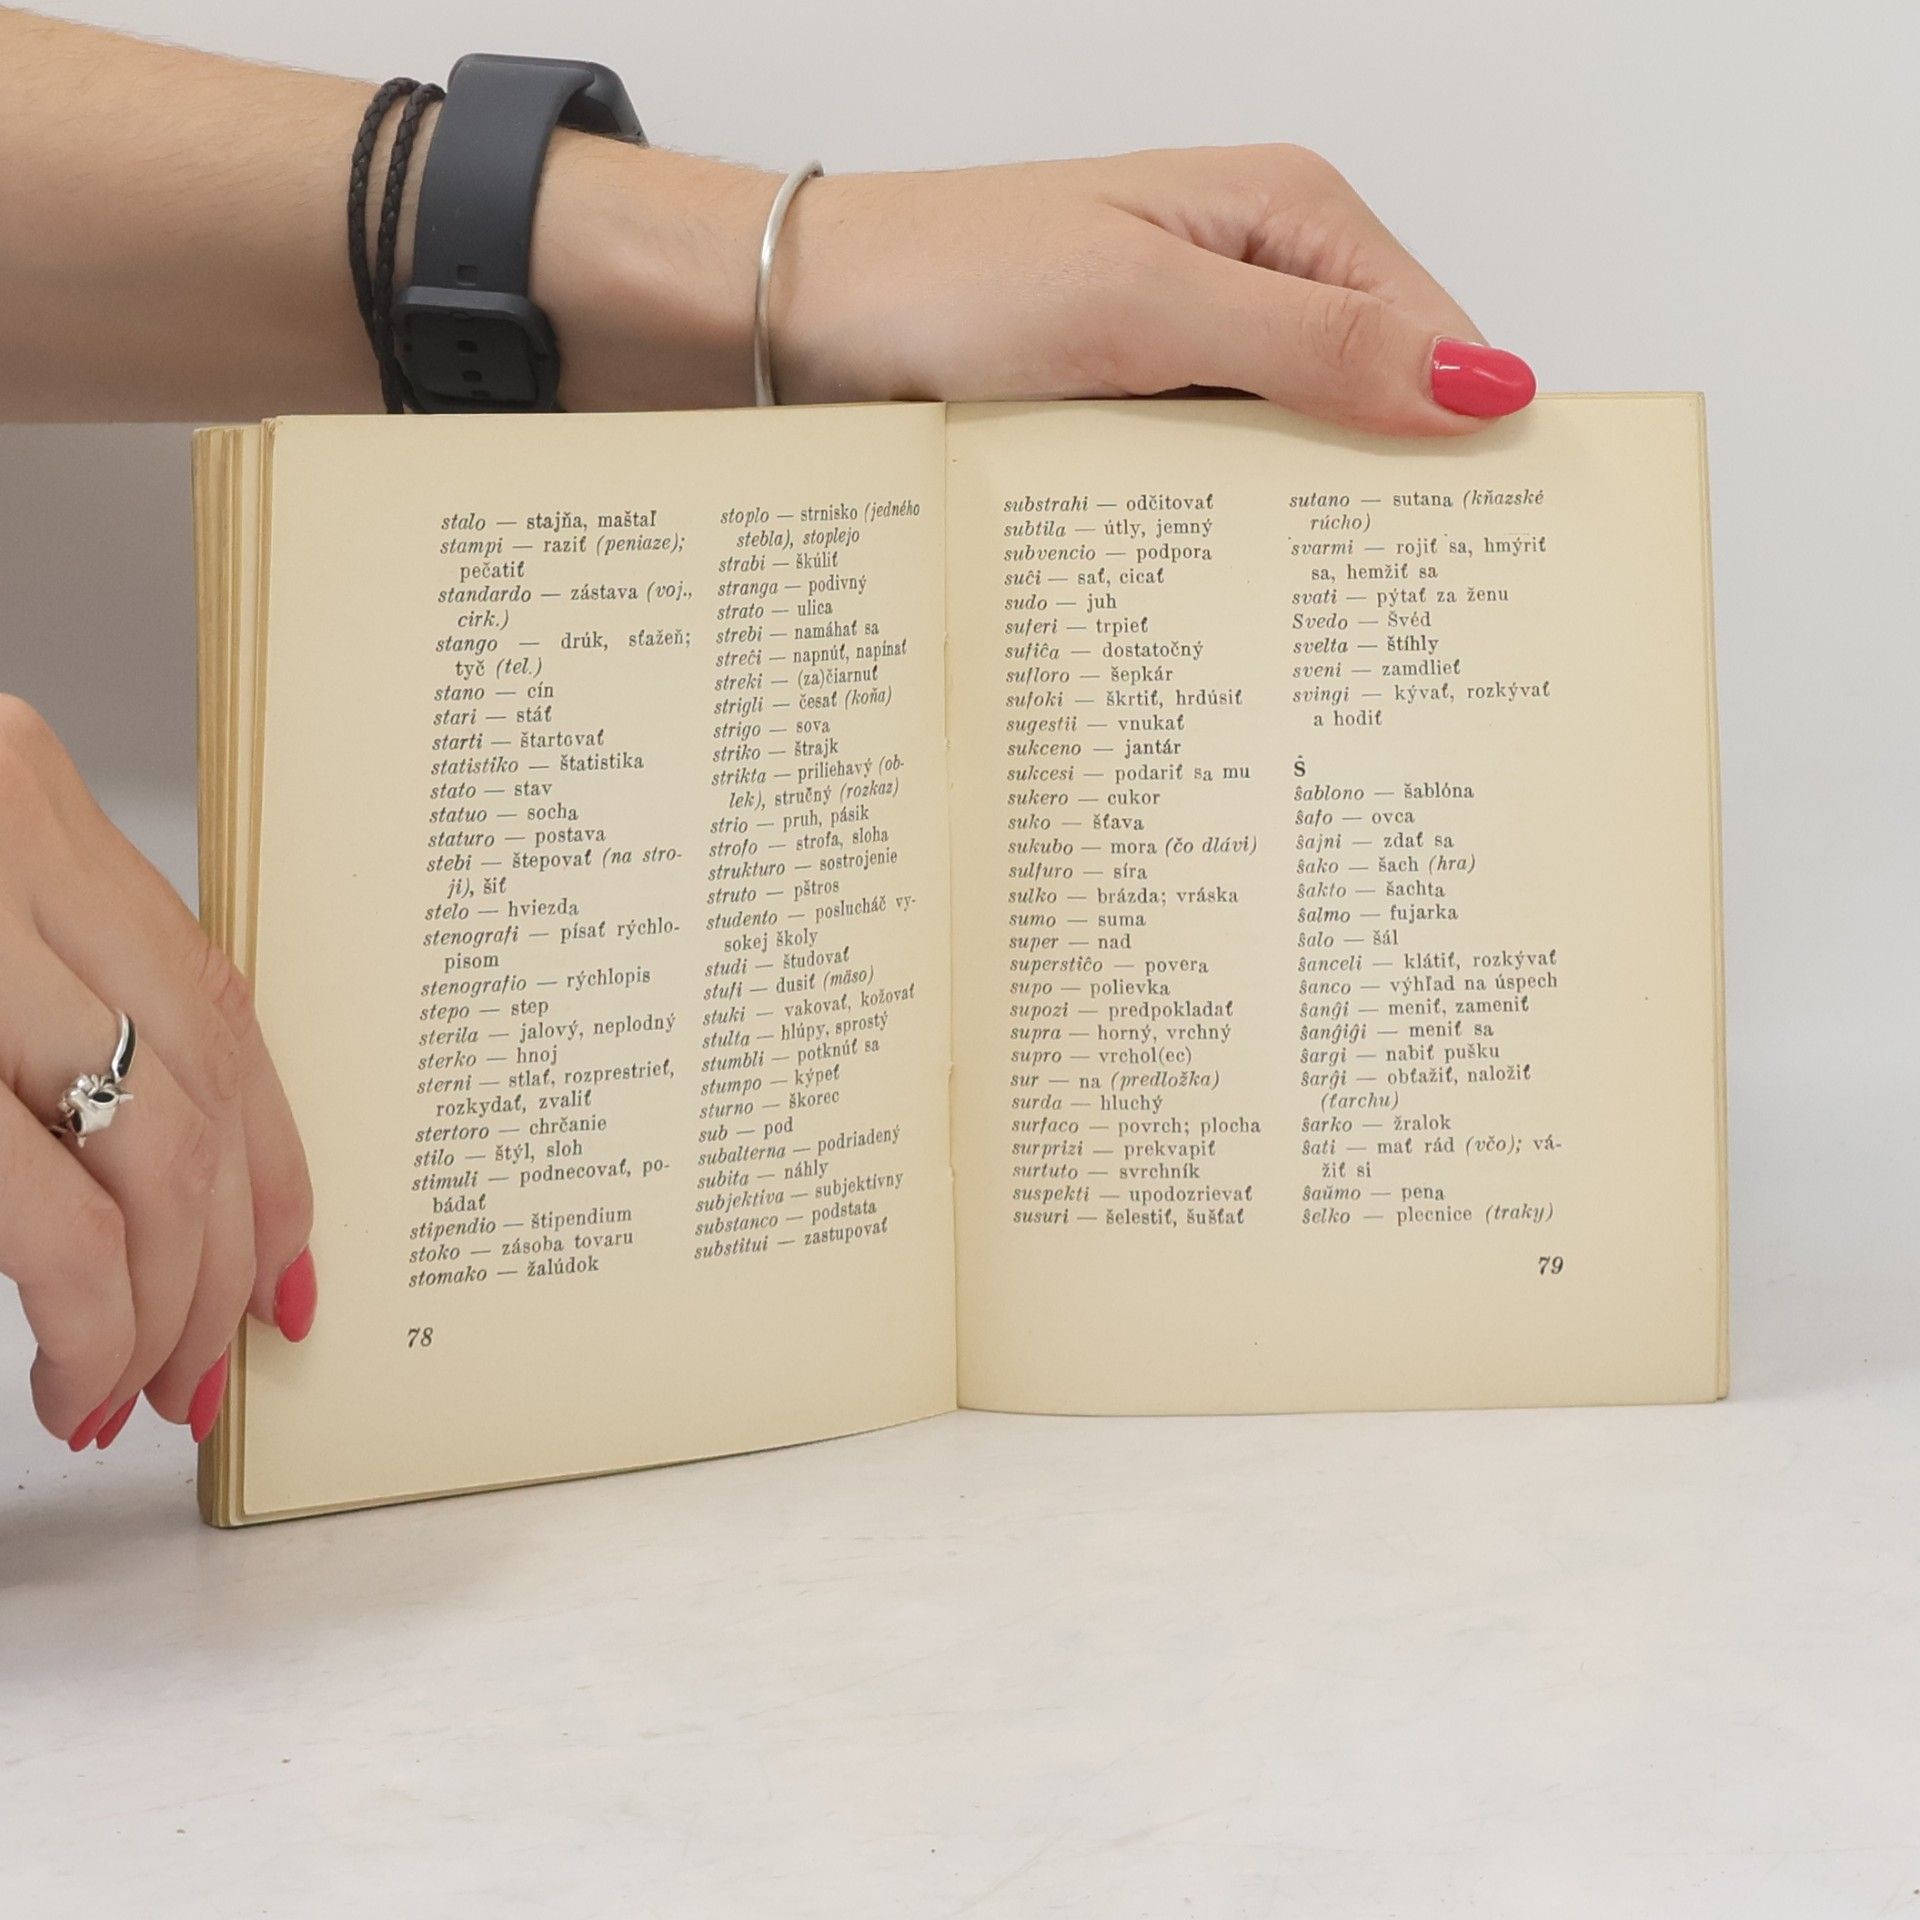 stalo — stajňa, maštaľ
stampi — raziť (peniaze);
pečatiť
standardo — zástava (voj.,
cirk.)
stango — drúk, sťažeň;
tyč (tel.)
stano — cín
stari — stáť
starti — štartovať
statistiko — štatistika
stato — stav
statuo — socha
staturo — postava
stebi — štepovať (na stro-
ji), šiť
stelo — hviezda
stenografi — písať rýchlo-
pisom
stenografio — rýchlopis
stepo — step
sterila — jalový, neplodný
sterko — hnoj
sterni — stlať, rozprestrieť,
rozkydať, zvaliť
stertoro — chrčanie
stilo — štýl, sloh
stimuli — podnecovať, po-
bádať
stipendio — štipendium
stoko — zásoba tovaru
stomako — žalúdok
78
stoplo — strnisko (jedného
stebla), stoplejo
strabi — škúliť
stranga — podivný
strato — ulica
strebi — namáhať sa
streĉi — napnúť, napínať
streki — (za)čiarnuť
strigli — česať (koňa)
strigo — sova
striko — štrajk
strikta — priliehavý (ob-
lek), stručný (rozkaz)
strio — pruh, pásik
strofo — strofa, sloha
strukturo — sostrojenie
struto — pštros
studento — poslucháč vy-
sokej školy
studi — študovať
stufi — dusiť (mäso)
stuki — vakovať, kožovať
stulta — hlúpy, sprostý
stumbli — potknúť sa
stumpo — kýpeť
sturno — škorec
sub — pod
subalterna — podriadený
subita — náhly
subjektiva — subjektívny
substanco — podstata
substitui — zastupovať
substrahi — odčitovať
subtila — útly, jemný
subvencio — podpora
suĉi — sať, cicať
sudo — juh
suferi — trpieť
sufiĉa — dostatočný
sufloro — šepkár
sufoki — škrtiť, hrdúsiť
sugestii — vnukať
sukceno — jantár
sukcesi — podariť sa mu
sukero — cukor
suko — šťava
sukubo — mora (čo dlávi)
sulfuro — síra
sulko — brázda; vráska
sumo — suma
super — nad
superstiĉo — povera
supo — polievka
supozi — predpokladať
supra — horný, vrchný
supro — vrchol(ec)
sur — na (predložka)
surda — hluchý
surfaco — povrch; plocha
surprizi — prekvapiť
surtuto — svrchník
suspekti — upodozrievať
susuri — šelestiť, šušťať
sutano — sutana (kňazské
rúcho)
svarmi — rojiť sa, hmýriť
sa, hemžiť sa
svati — pýtať za ženu
Svedo — Švéd
svelta — štíhly
sveni — zamdlieť
svingi — kývať, rozkývať
a hodiť
Ŝ
ŝablono — šablóna
ŝafo — ovca
ŝajni — zdať sa
ŝako — šach (hra)
ŝakto — šachta
ŝalmo — fujarka
ŝalo — šál
ŝanceli — klátiť, rozkývať
ŝanco — výhľad na úspech
ŝanĝi — meniť, zameniť
ŝanĝiĝi — meniť sa
ŝargi — nabiť pušku
ŝarĝi — obťažiť, naložiť
(ťarchu)
ŝarko — žralok
ŝati — mať rád (včo); vá-
žiť si
ŝaŭmo — pena
ŝelko — plecnice (traky)
79